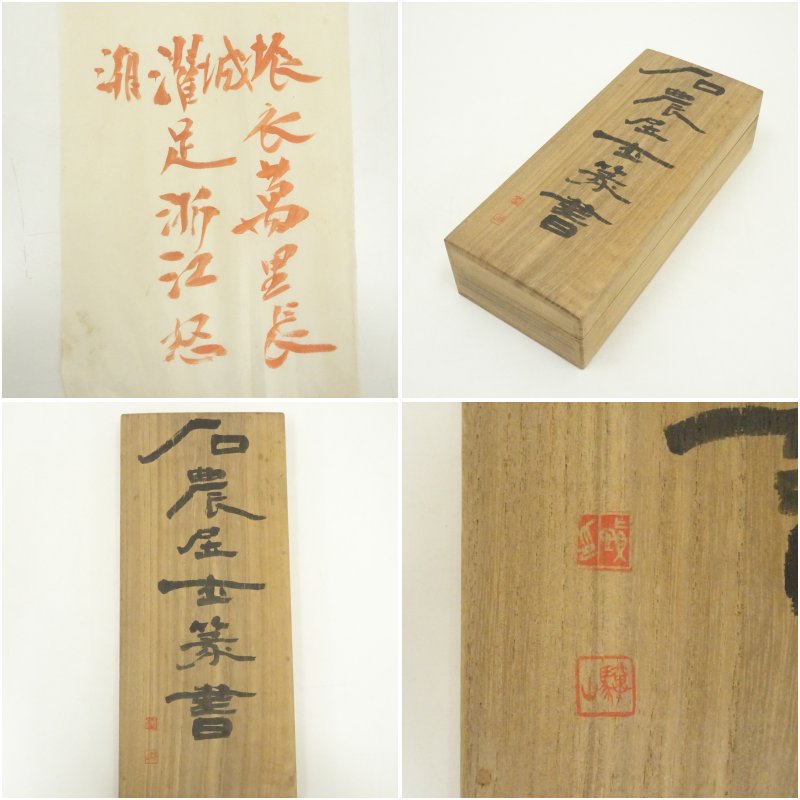 振衣萬里長
城
濯足浙江怒
潮
石農居士篆書
石農居士篆書
驥山